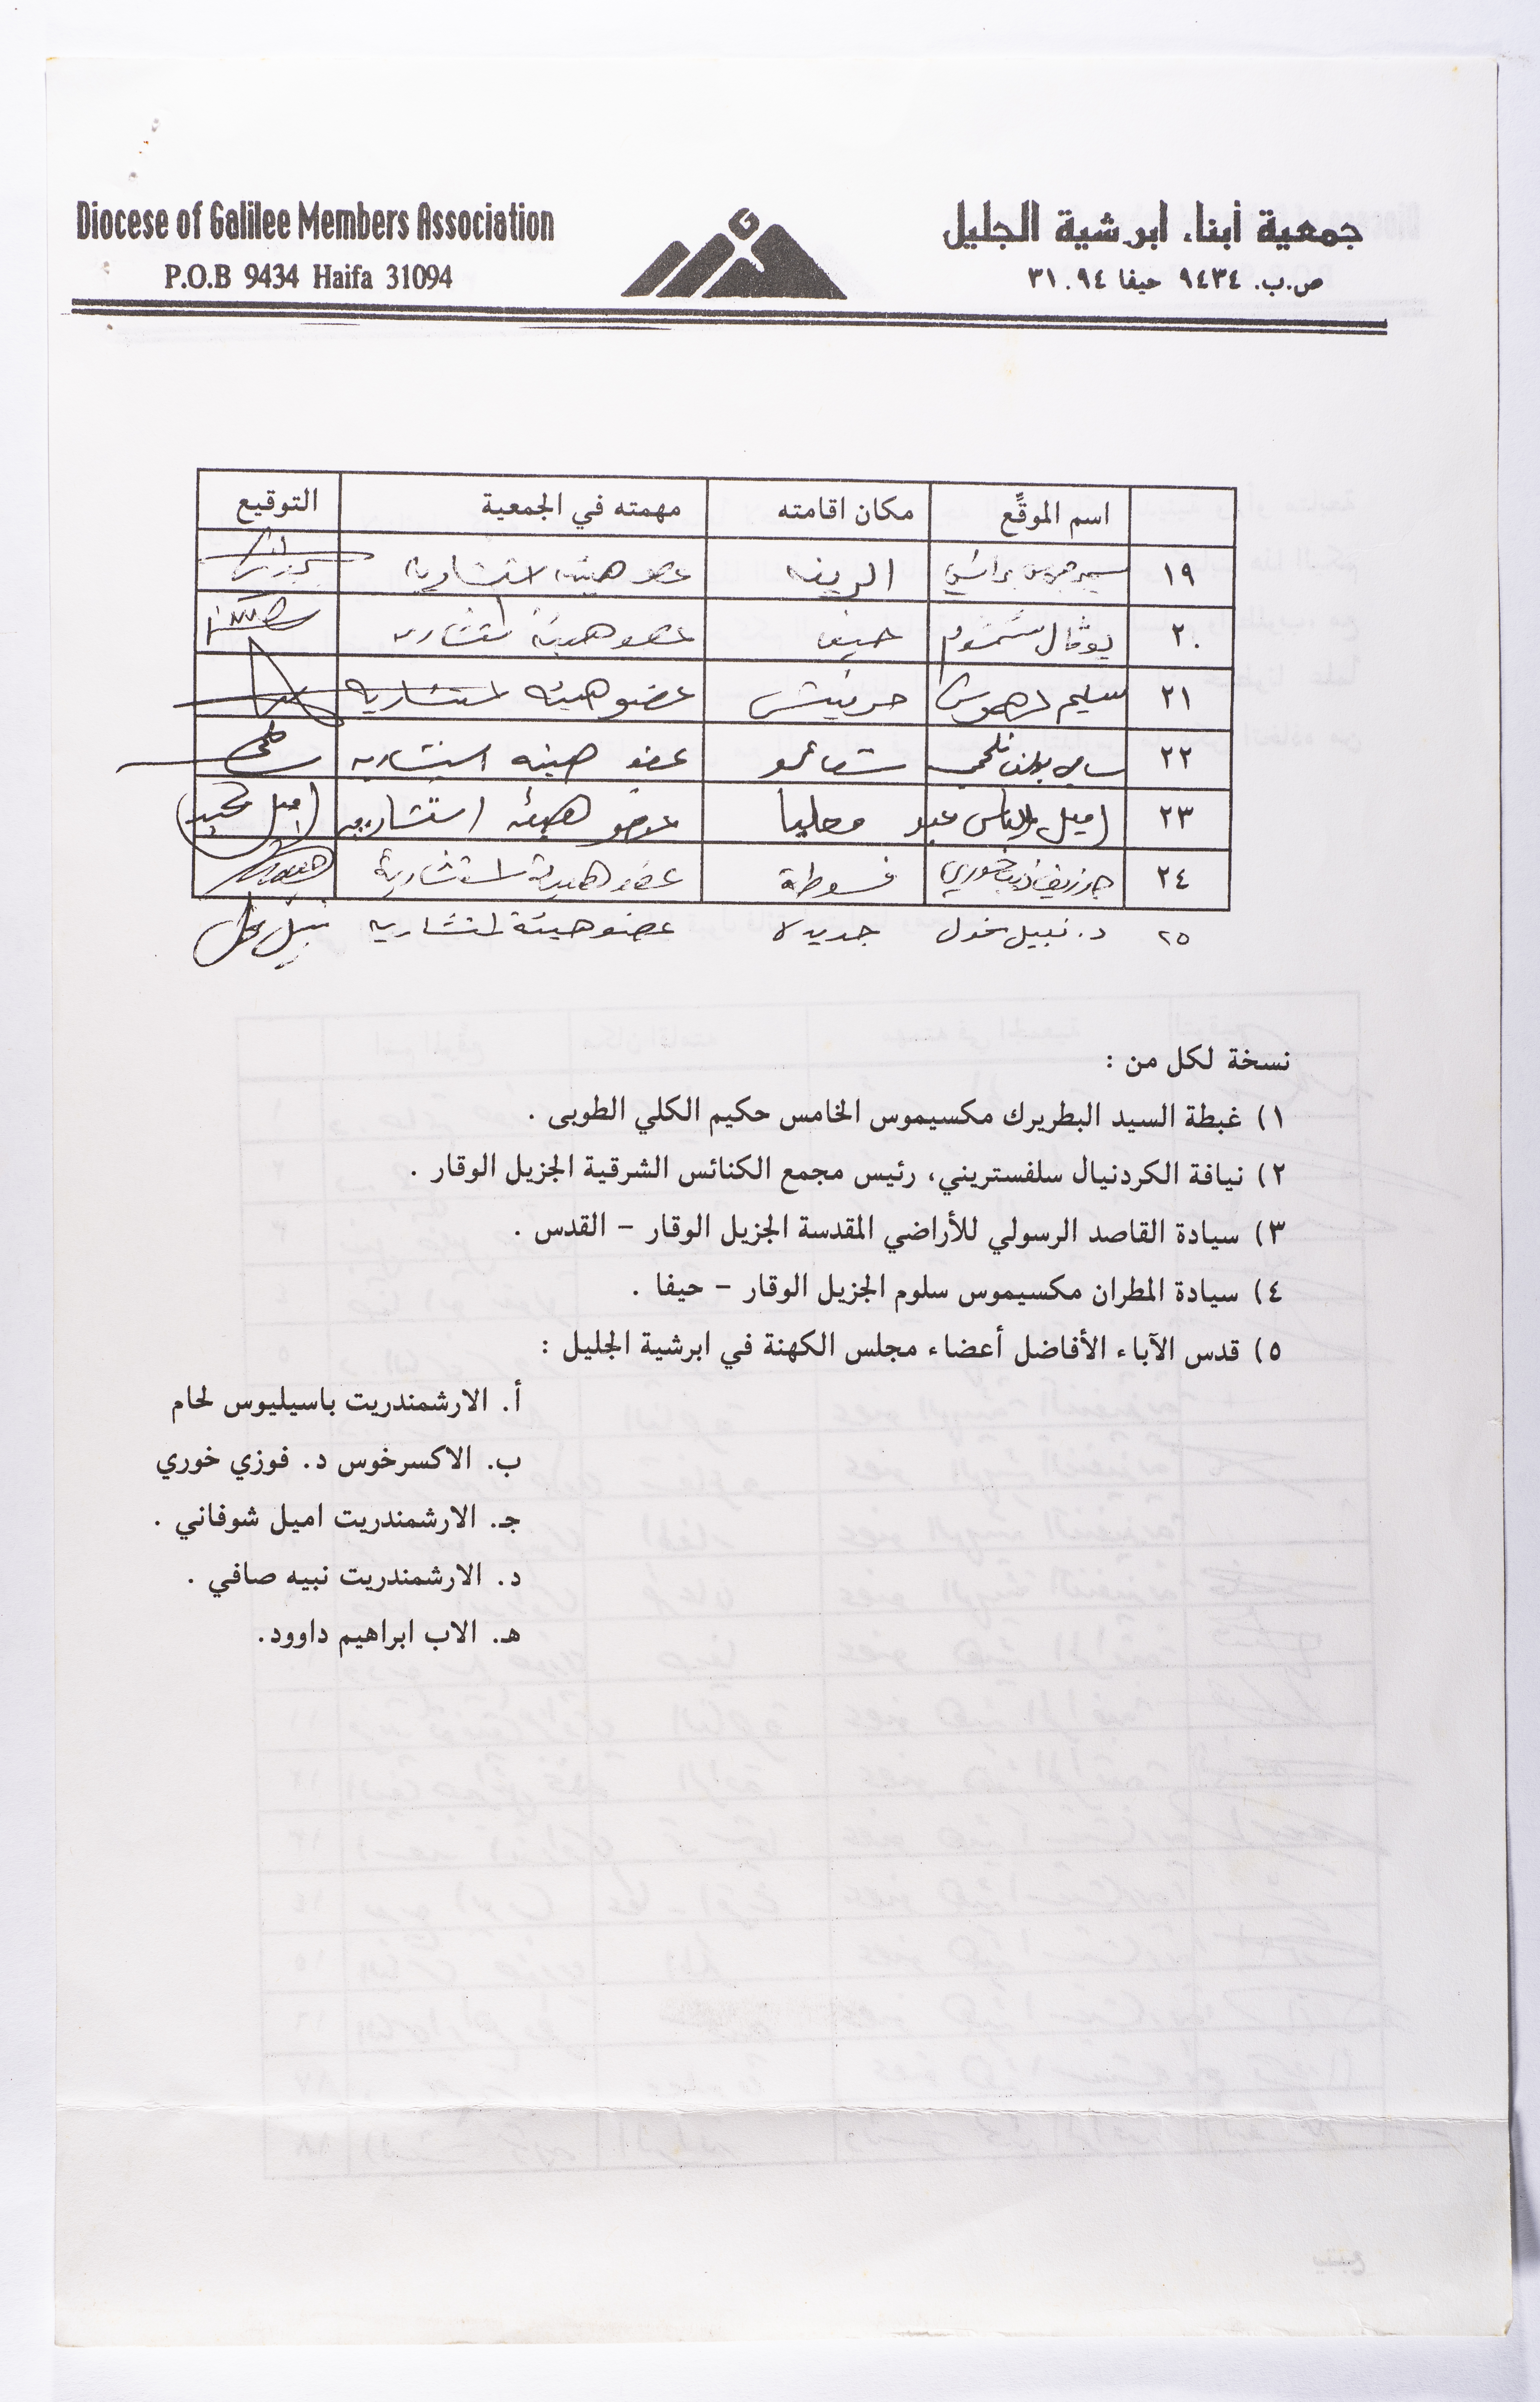 Diocese of Galilee Members Association
P.O.B 9434 Haifa 31094
جمعية أبناء ابرشية الجليل
ص.ب. ٩٤٣٤ حيفا ٣١٠٩٤
اسم الموقِّع مكان اقامته مهمته في الجمعية التوقيع
١٩ سمير جريس الرينه عضو هيئه استشاريه
٢٠ يوفال حيفا عضو هيئة استشاريه
٢١ سليم حرفيش عضو هيئه استشاريه
٢٢ سامي عضو هيئه استشاريه
٢٣ اميل الياس عبد معليا عضو هيئه استشاريه
٢٤ جوزيف ذيب خوري فسوطة عضو هيئة استشارية
٢٥ د. نبيل مخول جديده عضو هيئة استشاريه نبيل مخول
نسخة لكل من :
١) غبطة السيد البطريرك مكسيموس الخامس حكيم الكلي الطوبى .
٢) نيافة الكردنيال سلفستريني، رئيس مجمع الكنائس الشرقية الجزيل الوقار .
٣) سيادة القاصد الرسولي للأراضي المقدسة الجزيل الوقار – القدس .
٤) سيادة المطران مكسيموس سلوم الجزيل الوقار – حيفا .
٥) قدس الآباء الأفاضل أعضاء مجلس الكهنة في ابرشية الجليل :
أ. الارشمندريت باسيليوس لحام
ب. الاكسرخوس د. فوزي خوري
جـ. الارشمندريت اميل شوفاني .
د. الارشمندريت نبيه صافي .
هـ. الاب ابراهيم داوود.